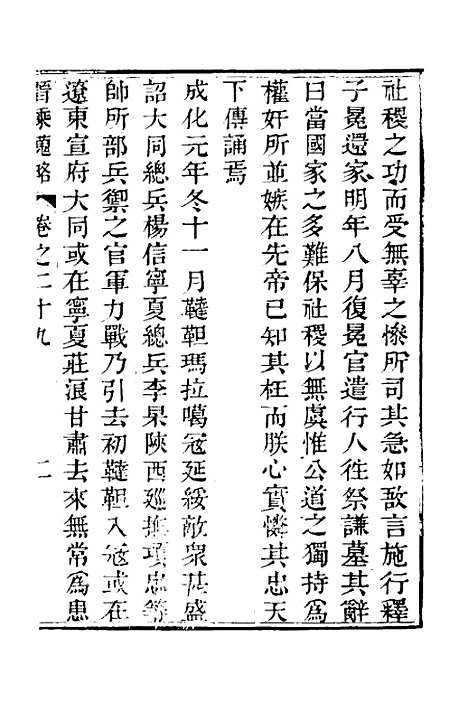 社稷之功而受無辜之慘所司其急如敌言施行釋
子冕還家明年八月復冕官遣行人往祭謙墓其辭
曰當國家之多難保社稷以無虞惟公道之獨持為
權奸所並嫉在先帝已知其枉而朕心實憐其忠天
下傳誦焉
成化元年冬十一月韃靼瑪拉噶寇延綏敵衆甚盛
詔大同總兵楊信寧夏總兵李杲陝西廵撫項忠等
帥所部兵禦之官軍力戰乃引去初韃靼入寇或在
遼東宣府大同或在寧夏莊浪甘肅去來無常為患
晉乘蒐略 卷之二十九 二